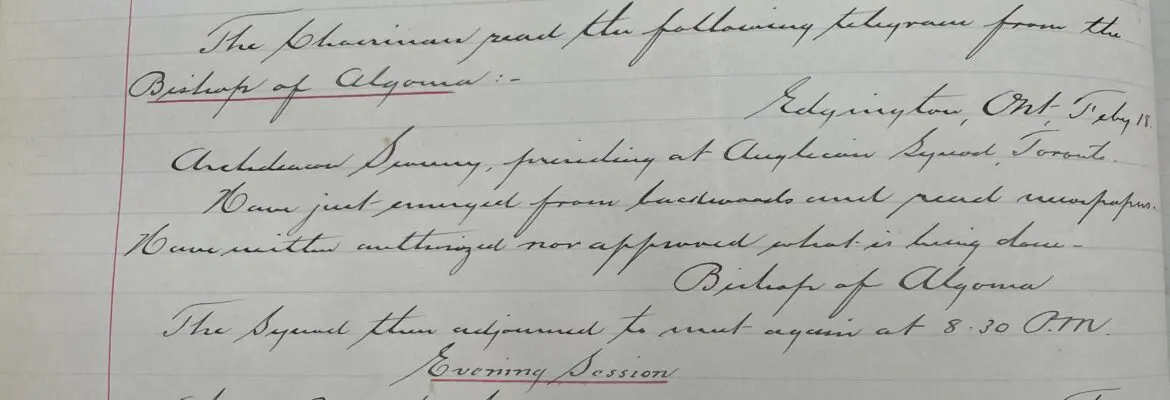 The Chairman read the following telegram from the
Bishop of Algoma :-
Edgington, Ont, Feby 18.
Archdeacon Sweeny, presiding at Anglican Synod, Toronto.
Have just emerged from backwoods and read newspapers.
Have neither authorized nor approved what is being done -
Bishop of Algoma
The Synod then adjourned to meet again at 8.30 P.M.
Evening Session